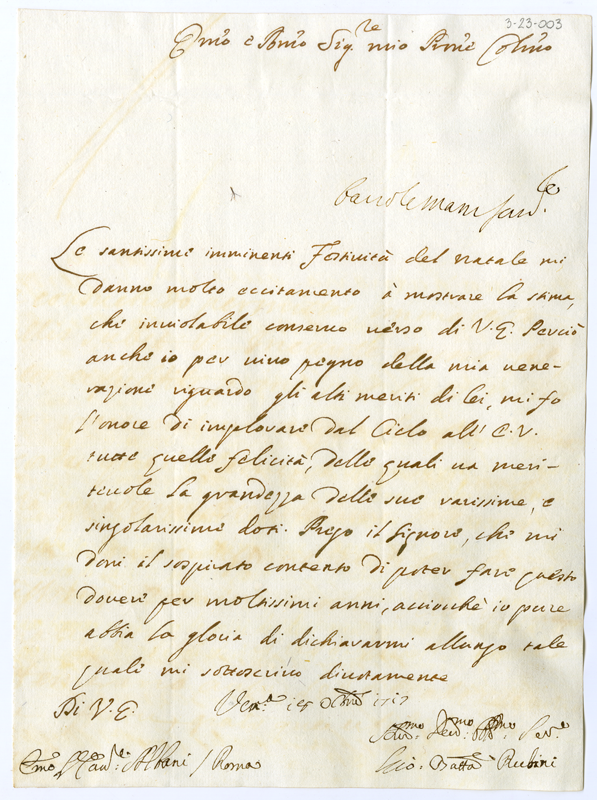 3-23-003
Emo e Rmo Sig.re mio Prne Colmo
Le santissime imminenti Festività del Natale mi
danno molto eccitamento à mostrare la stima,
che inviolabile conservo verso di V. E. Perciò
anche io per vivo pegno della mia vene-
razione riguardo gli alti meriti di lei, mi fo
l'onore di implorare dal Cielo all' E. V.
tutte quelle felicità, delle quali va meri-
tevole la grandezza delle sue rarissime, e
singolarissime doti. Prego il Signore, che mi
doni il sospirato contento di poter fare questo
dovere per moltissimi anni, acciochè io pure
abbia la gloria di dichiararmi allungo tale
quale mi sottoscrivo divotamente
Di V. E. Ven.a 1717
Albani / Roma Gio: Batta Rubini